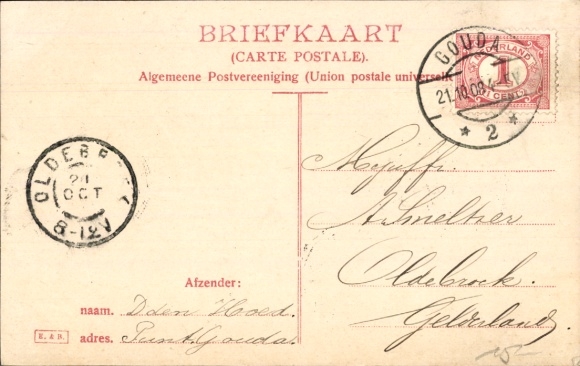 BRIEFKAART
(CARTE POSTALE).
Algemeene Postvereeniging (Union postale universelle
GOUDA
21.10.08
* 2 *
NEDERLAND
1
CENT
OLDEBR
OCT
8-12V
Mejuffr.
A Smeltzer
Oldebroek.
Gelderland
Afzender:
naam. D den Hoed.
adres. Gouda.
K. & B.